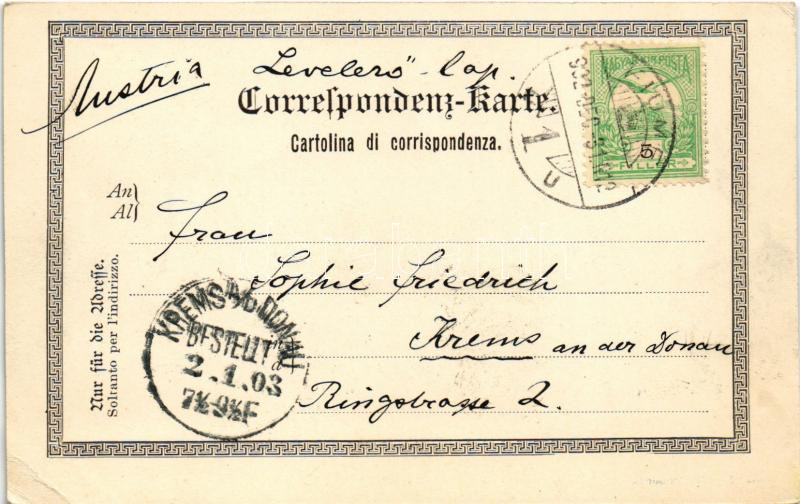 Austria
Levelező-lap.
Correspondenz-Karte.
Cartolina di corrispondenza.
MAGYAR KIR. POSTA
5
FILLÉR
FIUM
An
Al
Frau
Sophie Friedrich
Krems an der Donau
Ringstrasse 2.
Nur für die Adresse.
Soltanto per l'indirizzo.
KREMS A/D DONAU
BESTELLT
2.1.03
7½-9½F